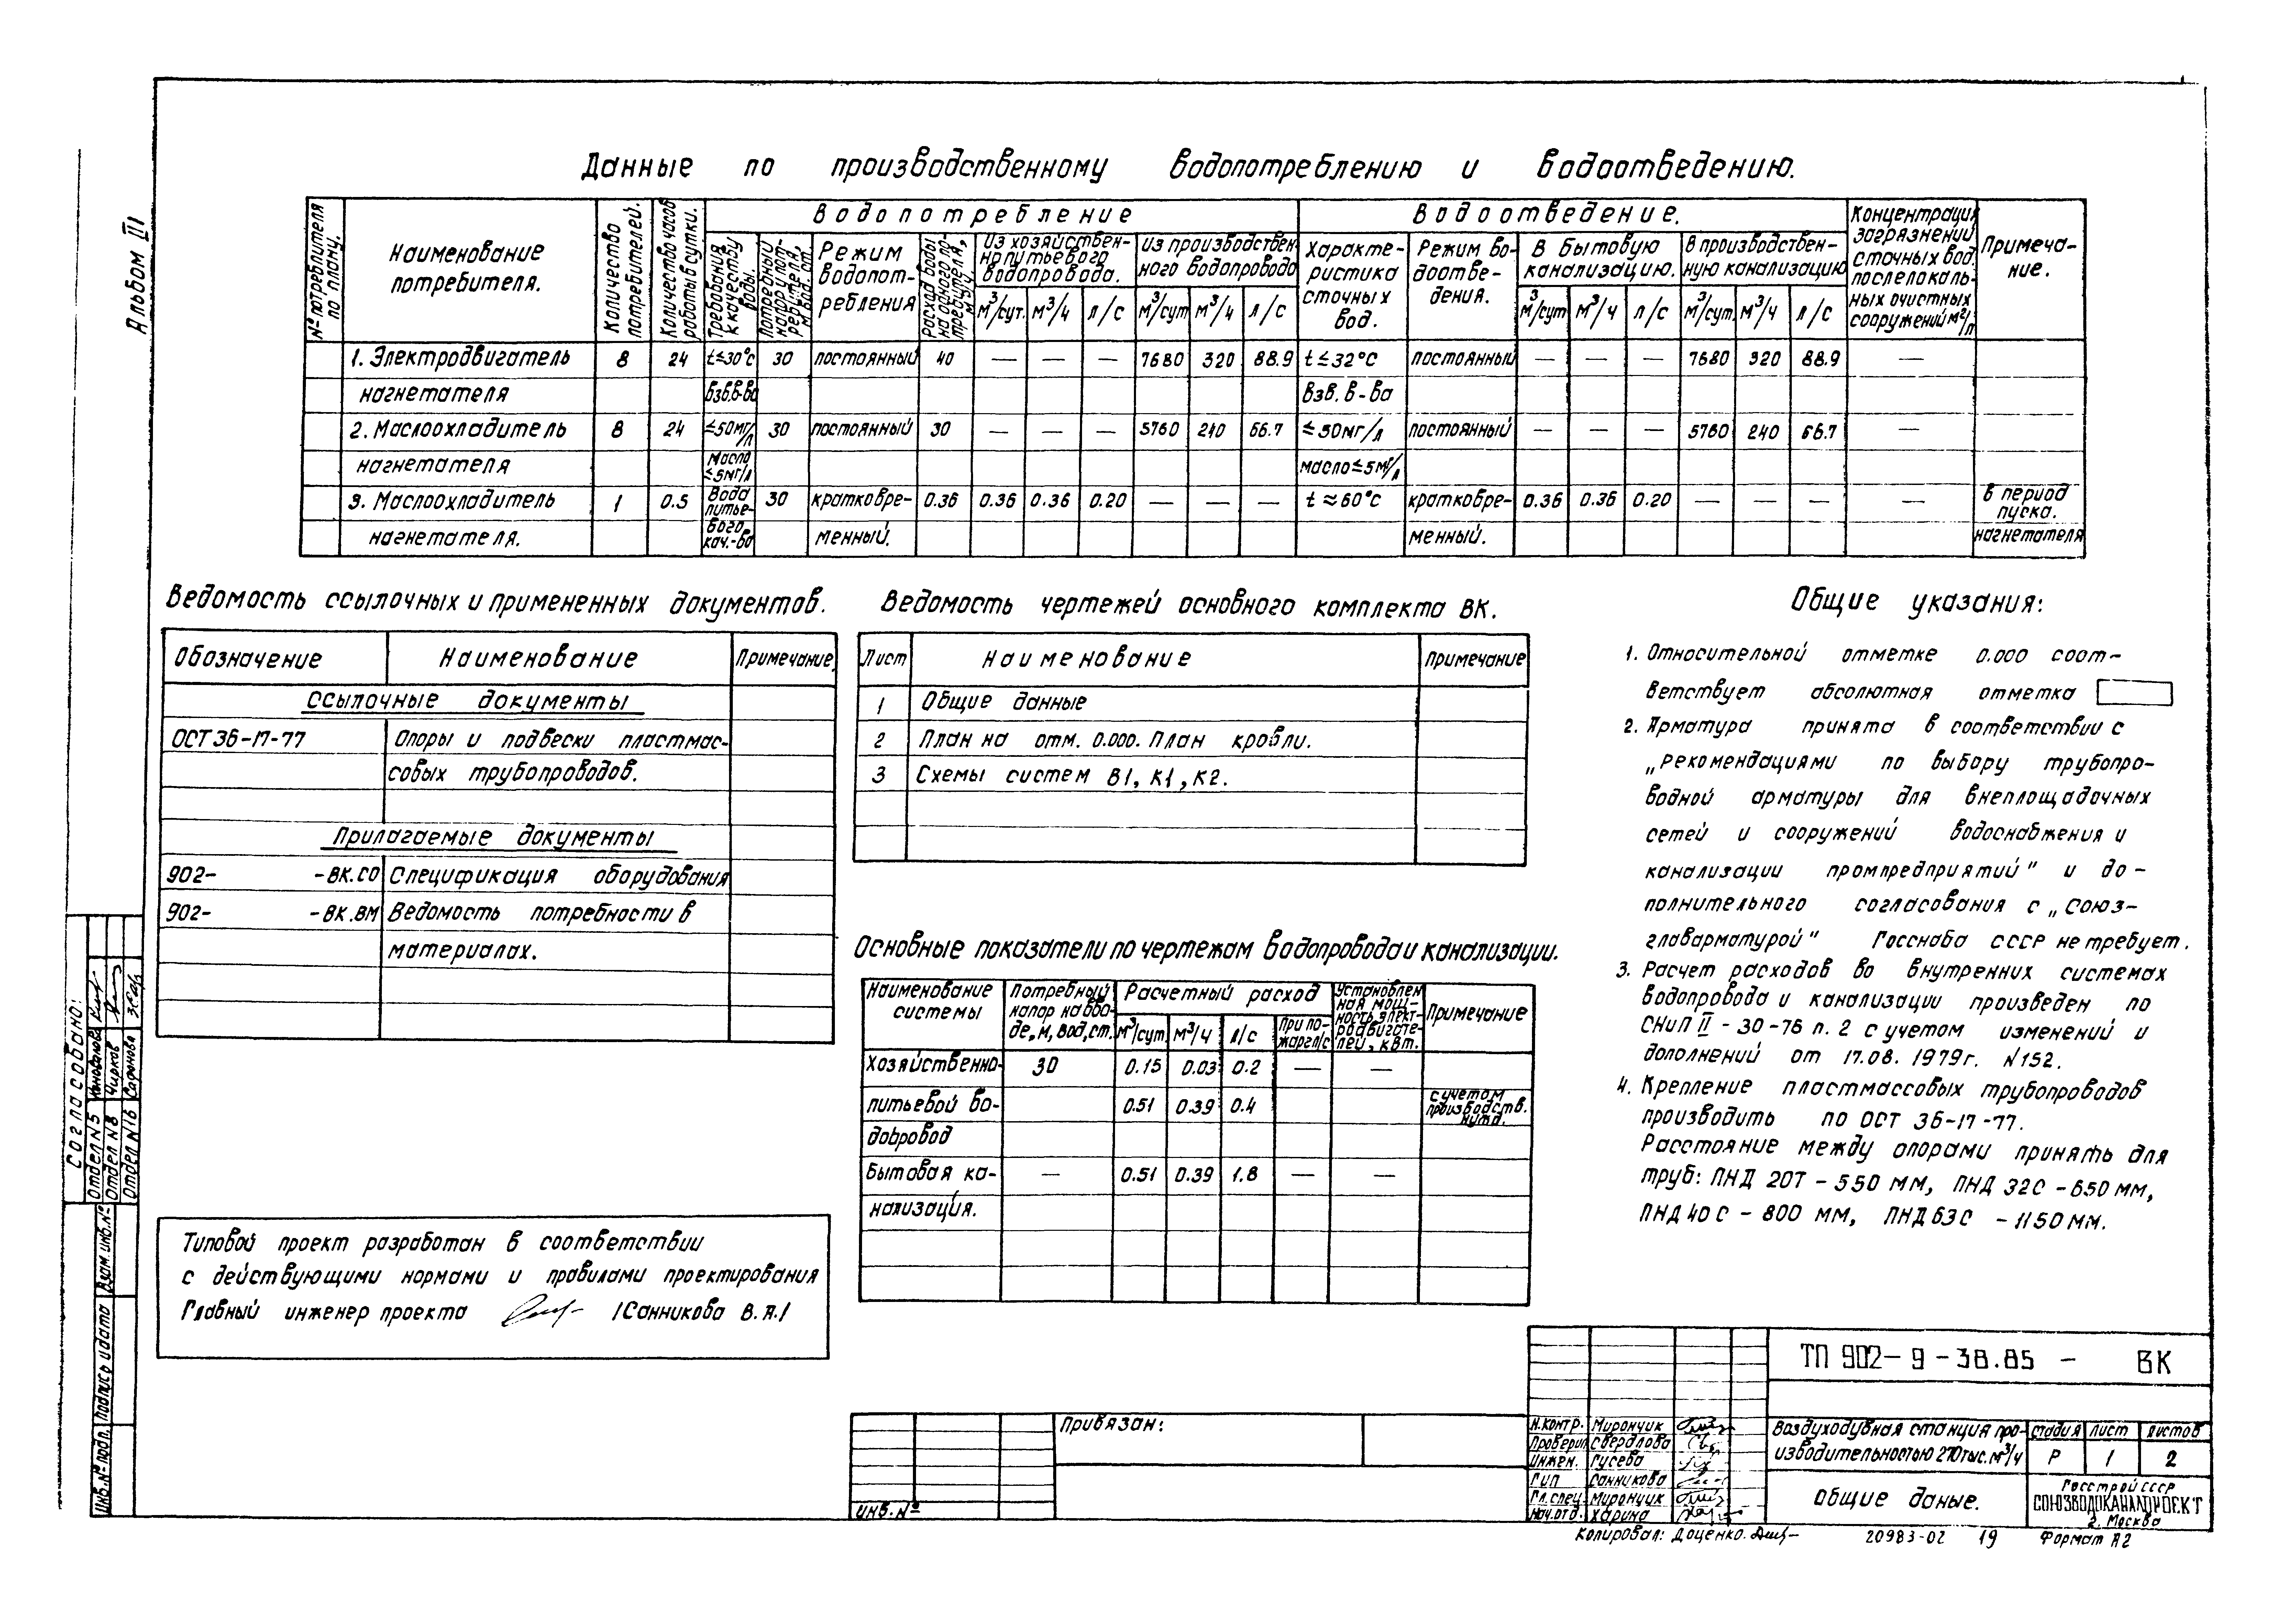 Альбом III
Данные по производственному водопотреблению и водоотведению.
№ потребителя по плану.
Наименование потребителя.
Количество потребителей.
Количество часов работы в сутки.
Водопотребление
Водоотведение.
Требования к качеству воды.
Потребный напор у потребителя, м вод. ст.
Режим водопотребления
Расход воды на одного потребителя, м³/ч.
Из хозяйственнпитьевого водопровода.
Из производственного водопровода
Характеристика сточных вод.
Режим водоотведения.
В бытовую канализацию.
В производственную канализацию
Концентрация загрязнений сточных вод после локальных очистных сооружений
Примечание.
м³/сут. м³/ч л/с м³/сут м³/ч л/с м³/сут м³/ч л/с м³/сут. м³/ч л/с
1. Электродвигатель 8 24 t≤30°С 30 постоянный 40 — — — 7680 320 88.9 t≤32°С постоянный — — — 7680 320 88.9 —
нагнетателя взв.в-ва взв. в-ва
2. Маслоохладитель 8 24 ≤50мг/л 30 постоянный 30 — — — 5760 240 66.7 ≤50мг/л постоянный — — — 5760 240 66.7 —
нагнетателя масло ≤5мг/л масло≤5мг/л
3. Маслоохладитель 1 0.5 Вода питье- 30 кратковре- 0.36 0.36 0.36 0.20 — — — t≈60°С кратковре- 0.36 0.36 0.20 — — — — в период пуска.
нагнетателя. вого кач.-ва менный. менный. нагнетателя
Ведомость ссылочных и примененных документов.
Обозначение Наименование Примечание
Ссылочные документы
ОСТ 36-17-77 Опоры и подвески пластмас-
совых трубопроводов.
Прилагаемые документы
902- -ВК.СО Спецификация оборудования
902- -ВК.ВМ Ведомость потребности в
материалах.
Ведомость чертежей основного комплекта ВК.
Лист Наименование Примечание
1 Общие данные
2 План на отм. 0.000. План кровли.
3 Схемы систем В1, К1, К2.
Основные показатели по чертежам водопровода и канализации.
Наименование системы
Потребный напор на вводе, м, вод, ст.
Расчетный расход
м³/сут. м³/ч л/с При пожаре л/с
Установленная мощность электродвигателей, квт.
Примечание
Хозяйственно- 30 0.15 0.03 0.2 — —
питьевой во- 0.51 0.39 0.4 с учетом производств. нужд.
допровод
Бытовая ка- — 0.51 0.39 1.8 — —
нализация.
Общие указания:
1. Относительной отметке 0.000 соот-
ветствует абсолютная отметка
2. Арматура принята в соответствии с
„рекомендациями по выбору трубопро-
водной арматуры для внеплощадочных
сетей и сооружений водоснабжения и
канализации промпредприятий" и до-
полнительного согласования с „Союз-
главарматурой" Госснаба СССР не требует.
3. Расчет расходов во внутренних системах
водопровода и канализации произведен по
СНиП II-30-76 п. 2 с учетом изменений и
дополнений от 17.08. 1979г. №152.
4. Крепление пластмассовых трубопроводов
производить по ОСТ 36-17-77.
Расстояние между опорами принять для
труб: ПНД 20Т - 550 мм, ПНД 32С - 650 мм,
ПНД 40С - 800 мм, ПНД 63С - 1150 мм.
Типовой проект разработан в соответствии
с действующими нормами и правилами проектирования
Главный инженер проекта /Санникова В.А./
Согласовано:
Отдел №5
Отдел №8 Чирков
Отдел №16 Сафонова
Инв. № подл. Подпись и дата Взам. инв. №
Привязан:
Инв. №
ТП 902-9-38.85 - ВК
Н.контр. Мирончик
Проверил Свердлова
Инжен. Гусева
ГИП Санникова
Гл.спец. Мирончик
Нач.отд. Харина
Воздуходувная станция про-
изводительностью 270 тыс. м³/ч
Стадия Лист Листов
Р 1 2
Общие даные.
Госстрой СССР
СОЮЗВОДОКАНАЛПРОЕКТ
г. Москва
Копировал: Доценко. 20983-02 19 Формат А2